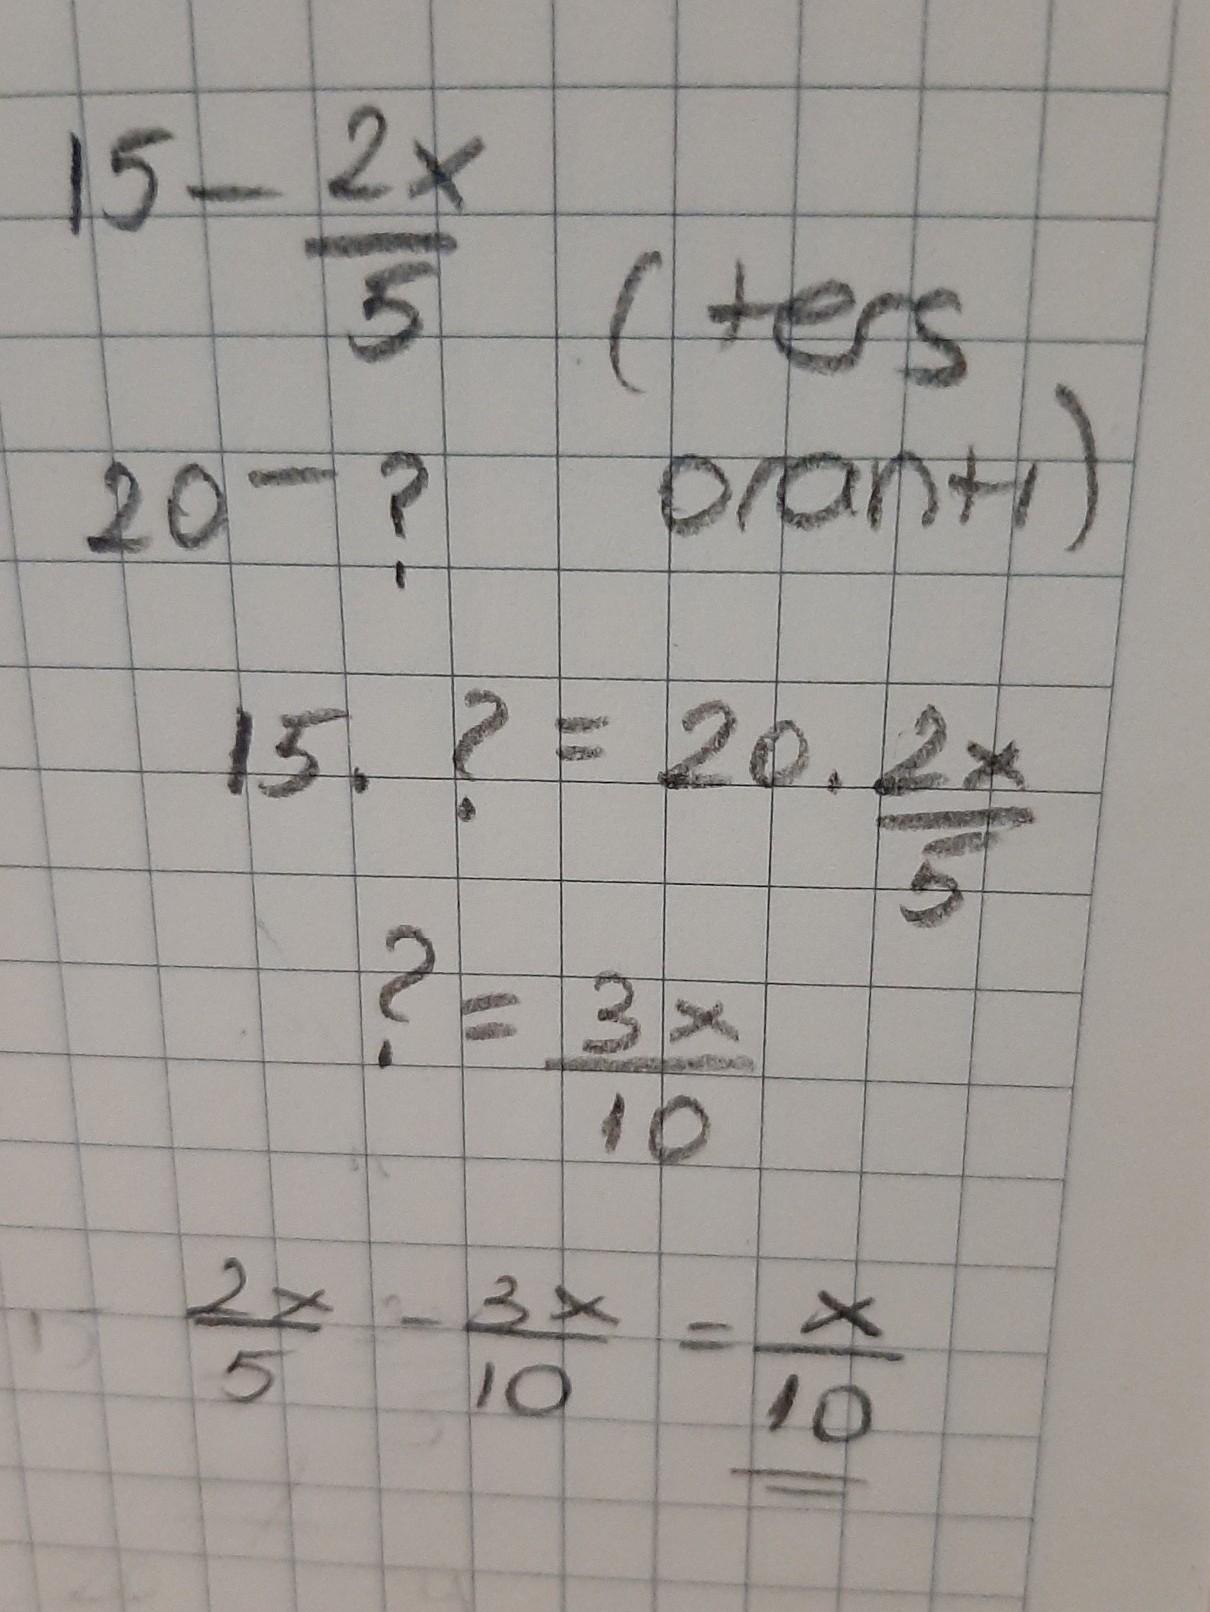 15 - 2x/5
(ters
20 - ?
orantı)
15 . ? = 20 . 2x/5
? = 3x/10
2x/5 - 3x/10 = x/10